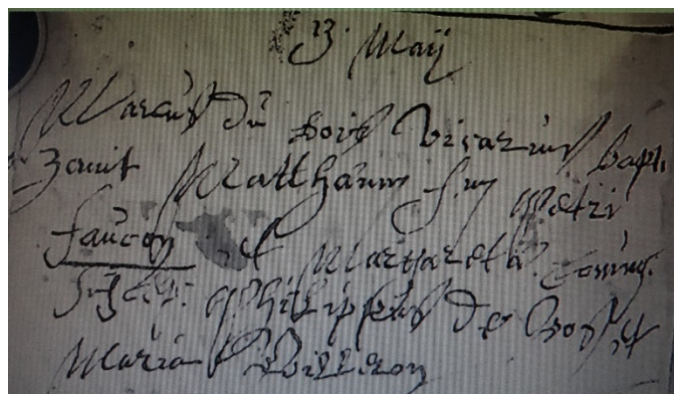 3 Maÿ
Marcus du bois Vicarius bapt.
zavit Matthæum f. m Petri
faucon et Margareta Coniug.
Susce: Philippus De Bos et
Maria Billeron